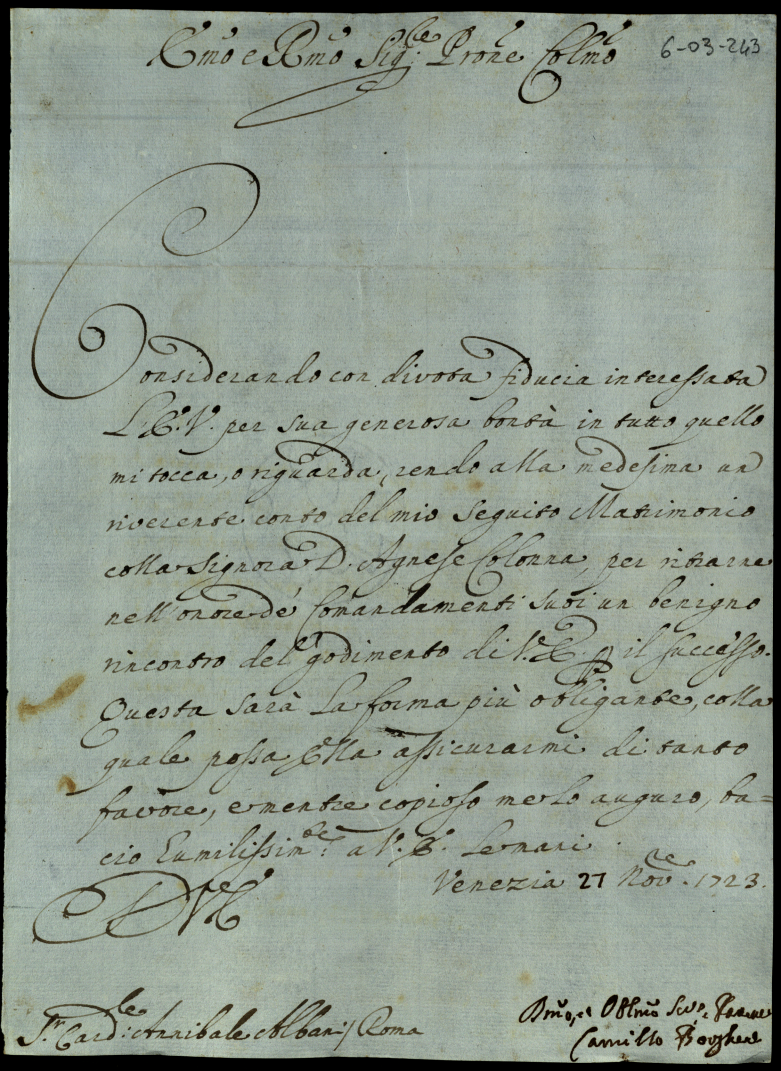 Emo e Rmo Sigr: Prone Colmo
6-03-243
Considerando con divota fiducia interessata
L'E. V. per sua generosa bontà in tutto quello
mi tocca, o riguarda, rendo alla medesima un
riverente conto del mio seguito Matrimonio
colla Signora D. Agnese Colonna, per ritrarne
nell'onore de' Comandamenti suoi un benigno
rincontro del godimento di V. E. p il successo.
Questa sarà la forma più obligante, colla
quale possa Ella assicurarmi di tanto
favore, e mentre copioso me lo auguro, ba=
cio Eumilissimte: a V. E. le mani.
Venezia 27 Nove. 1723.
DVE
Sr. Cardle: Annibale Albani / Roma
Dmo, et Oblmo Sere
Camillo Borghese